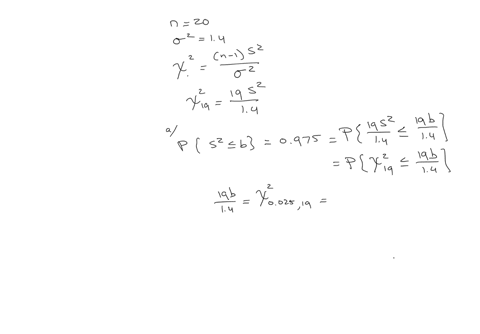 n = 20
σ² = 1.4
χ² = (n-1) S² / σ²
χ²₁₉ = 19 S² / 1.4
a/ P{ S² ≤ b } = 0.975 = P{ 19 S² / 1.4 ≤ 19b / 1.4 }
= P{ χ²₁₉ ≤ 19b / 1.4 }
19b / 1.4 = χ²₀.₀₂₅,₁₉ =